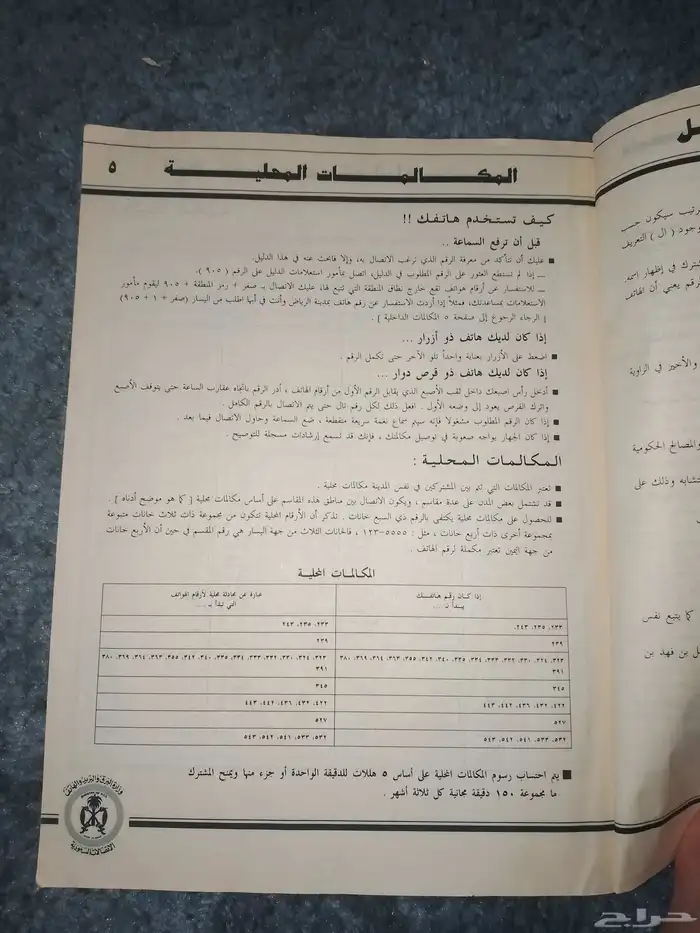 المكالمات المحلية
٥
كيف تستخدم هاتفك !!
قبل أن ترفع السماعة ..
■ عليك أن تتأكد من معرفة الرقم الذي ترغب الاتصال به، وإلا فابحث عنه في هذا الدليل.
— إذا لم تستطع العثور على الرقم المطلوب في الدليل، اتصل بمأمور استعلامات الدليل على الرقم (٩٠٥).
— للاستفسار عن أرقام هواتف تقع خارج نطاق المنطقة التي تتبع لها، عليك الاتصال بـ صفر + رمز المنطقة + ٩٠٥ ليقوم مأمور
الاستعلامات بمساعدتك، فمثلاً إذا أردت الاستفسار عن رقم هاتف بمدينة الرياض وأنت في أبها اطلب من اليسار (صفر + ١ + ٩٠٥)
[ الرجاء الرجوع إلى صفحة ٥ المكالمات الداخلية ] .
إذا كان لديك هاتف ذو أزرار ...
■ اضغط على الأزرار بعناية واحداً تلو الآخر حتى تكمل الرقم .
إذا كان لديك هاتف ذو قرص دوار ...
■ أدخل رأس إصبعك داخل ثقب الأصبع الذي يقابل الرقم الأول من أرقام الهاتف ، أدر الرقم باتجاه عقارب الساعة حتى يتوقف الأصبع
واترك القرص يعود إلى وضعه الأول . افعل ذلك لكل رقم تال حتى يتم الاتصال بالرقم الكامل .
■ إذا كان الرقم المطلوب مشغولا فإنه سيتم سماع نغمة سريعة متقطعة ، ضع السماعة وحاول الاتصال فيما بعد .
■ إذا كان الجهاز يواجه صعوبة في توصيل مكالمتك ، فإنك قد تسمع إرشادات مسجلة للتوضيح .
المكالمات المحلية :
■ تعتبر المكالمات التي تتم بين المشتركين في نفس المدينة مكالمات محلية .
■ قد تشتمل بعض المدن على عدة مقاسم ، ويكون الاتصال بين مناطق هذه المقاسم على أساس مكالمات محلية [ كما هو موضح أدناه ] .
■ للحصول على مكالمات محلية يكتفى بالرقم ذي السبع خانات . تذكر أن الأرقام المحلية تتكون من مجموعة ذات ثلاث خانات متبوعة
بمجموعة أخرى ذات أربع خانات ، مثل : ٥٥٥٥-١٢٣ ، فالخانات الثلاث من جهة اليسار هي رقم المقسم في حين أن الأربع خانات
من جهة اليمين تعتبر مكملة لرقم الهاتف .
المكالمات المحلية
إذا كان رقم هاتفك
يبدأ بـ ...
عبارة عن محادثة محلية لأرقام الهواتف
التي تبدأ بـ ...
٢٣٣، ٢٣٥، ٢٤٣
٢٣٣، ٢٣٥، ٢٤٣
٢٣٩
٢٣٩
٣٢٣، ٣٢٤، ٣٣٠، ٣٣٢، ٣٣٣، ٣٣٤، ٣٣٥، ٣٤٠، ٣٤٢، ٣٥٥، ٣٦٣، ٣٦٤، ٣٦٩، ٣٨٠
٣٩١
٣٢٣، ٣٢٤، ٣٣٠، ٣٣٢، ٣٣٣، ٣٣٤، ٣٣٥، ٣٤٠، ٣٤٢، ٣٥٥، ٣٦٣، ٣٦٤، ٣٦٩، ٣٨٠
٣٩١
٣٤٥
٣٤٥
٤٢٢، ٤٣٢، ٤٣٦، ٤٤٢، ٤٤٣
٤٢٢، ٤٣٢، ٤٣٦، ٤٤٢، ٤٤٣
٥٢٧
٥٢٧
٥٣٢، ٥٣٣، ٥٤١، ٥٤٢، ٥٤٣
٥٣٢، ٥٣٣، ٥٤١، ٥٤٢، ٥٤٣
■ يتم احتساب رسوم المكالمات المحلية على أساس ٥ هللات للدقيقة الواحدة أو جزء منها ويمنح المشترك
ما مجموعة ١٥٠ دقيقة مجانية كل ثلاثة أشهر .
وزارة البرق والبريد والهاتف
الاتصالات السعودية
ـل
ترتيب سيكون حسب
وجود ( ال ) التعريف
شترك في إظهار اسم
رقم يعني أن الهاتف
والأخير في الزاوية
والمصالح الحكومية
تشابه وذلك على
كما يتبع نفس
ل بن فهد بن
حراج